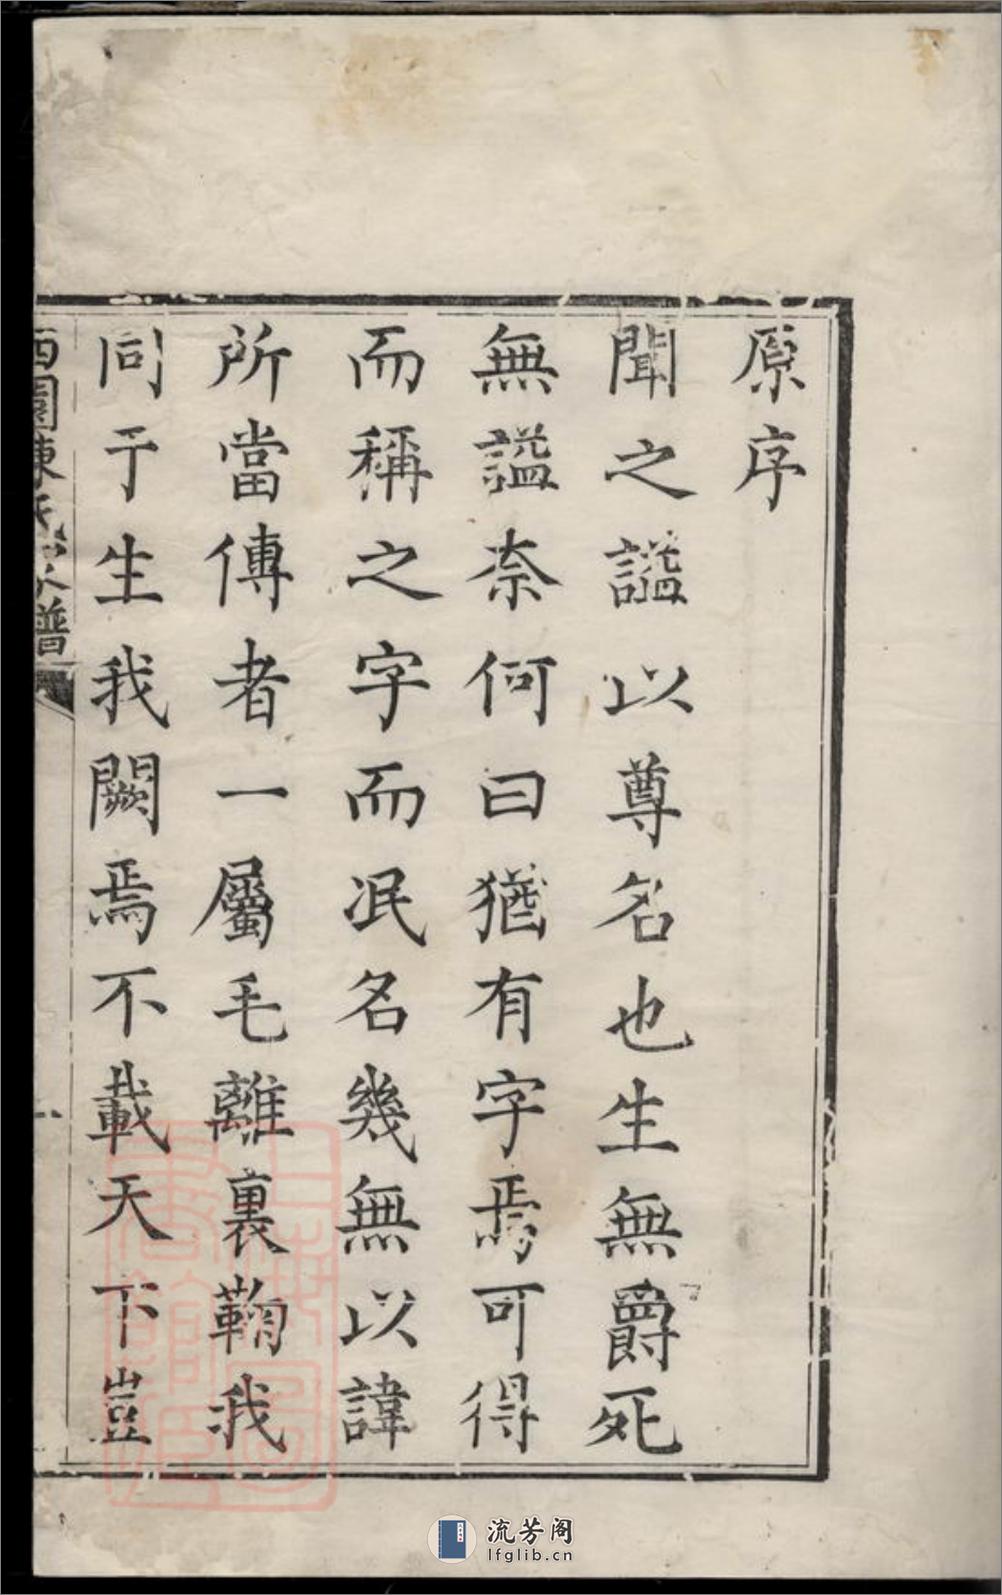 原序
聞之謚以尊名也生無爵死
無謚奈何曰猶有字焉可得
而稱之字而冺名幾無以諱
所當傳者一屬毛離裏鞠我
同于生我闕焉不載天下豈
西園陳氏宗譜
一
上海圖書館藏
流芳阁
lfglib.cn